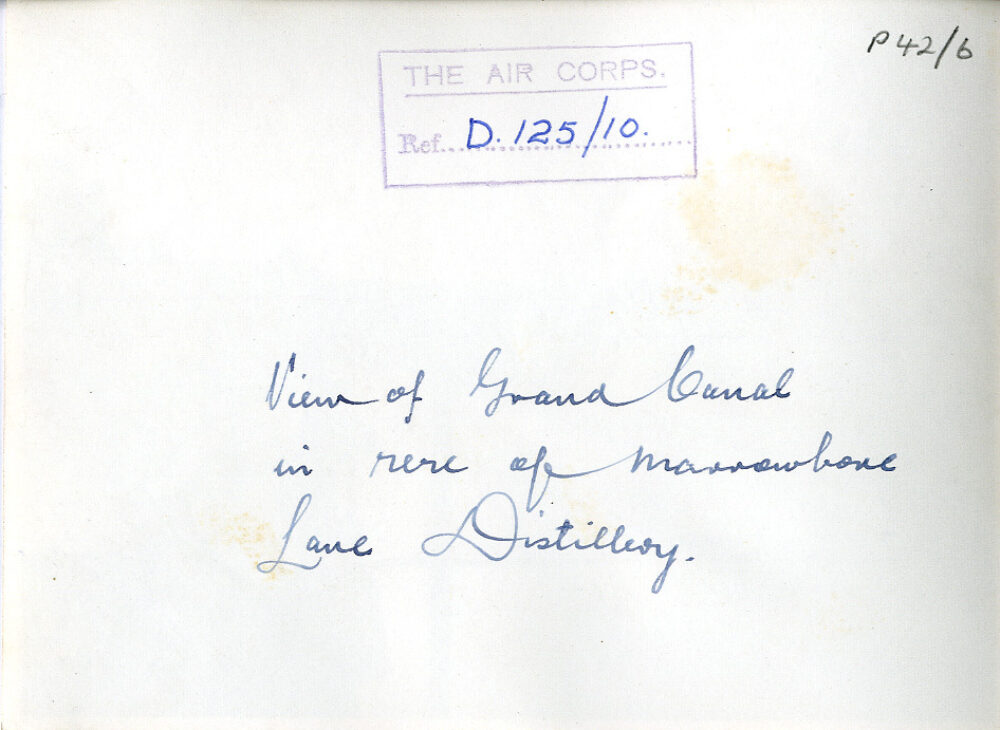 P42/6
THE AIR CORPS.
Ref. D. 125/10.
View of Grand Canal
in rere of Marrowbone
Lane Distillery.